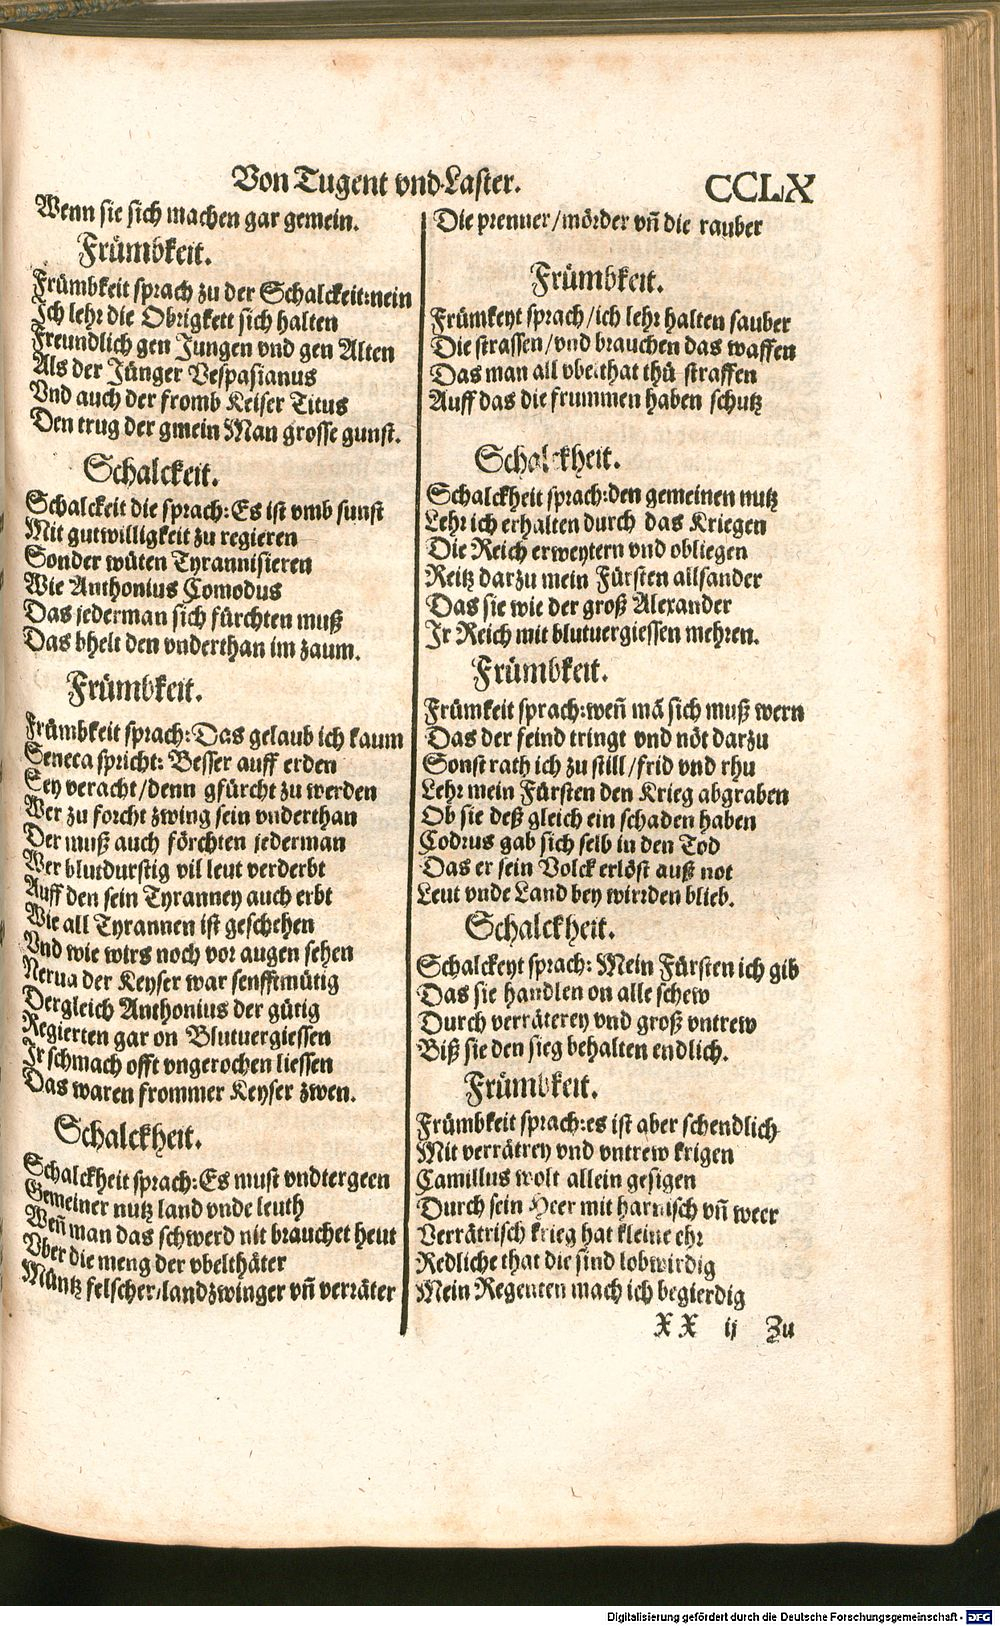 Von Tugent vnd Laster.
CCLX
Wenn sie sich machen gar gemein.
Frümbkeit.
Frümbkeit sprach zu der Schalckeit:nein
Ich lehr die Obrigkett sich halten
Freundlich gen Jungen vnd gen Alten
Als der Jünger Vespasianus
Vnd auch der fromb Keiser Titus
Den trug der gmein Man grosse gunst.
Schalckeit.
Schalckeit die sprach:Es ist vmb sunst
Mit gutwilligkeit zu regieren
Sonder wüten Tyrannisieren
Wie Anthonius Comodus
Das jederman sich fürchten muß
Das bhelt den vnderthan im zaum.
Frümbkeit.
Frümbkeit sprach:Das gelaub ich kaum
Seneca spricht: Besser auff erden
Sey veracht/denn gfürcht zu werden
Wer zu forcht zwing sein vnderthan
Der muß auch förchten jederman
Wer blutdurstig vil leut verderbt
Auff den sein Tyranney auch erbt
Wie all Tyrannen ist geschehen
Vnd wie wirs noch vor augen sehen
Nerua der Keyser war senfftmütig
Dergleich Anthonius der gütig
Regierten gar on Blutuergiessen
Ir schmach offt vngerochen liessen
Das waren frommer Keyser zwen.
Schalckheit.
Schalckheit sprach:Es must vndtergeen
Gemeiner nutz land vnde leuth
Weñ man das schwerd nit brauchet heut
Vber die meng der vbelthäter
Müntz felscher/landzwinger vñ verräter
Die prenner/mörder vñ die rauber
Frümbkeit.
Frümkeyt sprach/ich lehr halten sauber
Die strassen/vnd brauchen das waffen
Das man all vbelthat thü straffen
Auff das die frummen haben schutz
Schalckheit.
Schalckheit sprach:den gemeinen nutz
Lehr ich erhalten durch das Kriegen
Die Reich erweytern vnd obliegen
Reitz darzu mein Fürsten allsander
Das sie wie der groß Alexander
Ir Reich mit blutuergiessen mehren.
Frümbkeit.
Frümkeit sprach:weñ mã sich muß wern
Das der feind tringt vnd nöt darzu
Sonst rath ich zu still/frid vnd rhu
Lehr mein Fürsten den Krieg abgraben
Ob sie deß gleich ein schaden haben
Codrus gab sich selb in den Tod
Das er sein Volck erlöst auß not
Leut vnde Land bey wirrden blieb.
Schalckheit.
Schalckeyt sprach: Mein Fürsten ich gib
Das sie handlen on alle schew
Durch verräterey vnd groß vntrew
Biß sie den sieg behalten endlich.
Frümbkeit.
Frümbkeit sprach:es ist aber schendlich
Mit verrätrey vnd vntrew krigen
Camillus wolt allein gesigen
Durch sein Heer mit harnisch vñ weer
Verrätrisch krieg hat kleine ehr
Redliche that die sind lobwirdig
Mein Regenten mach ich begierdig
XX ij Zu
Digitalisierung gefördert durch die Deutsche Forschungsgemeinschaft - DFG